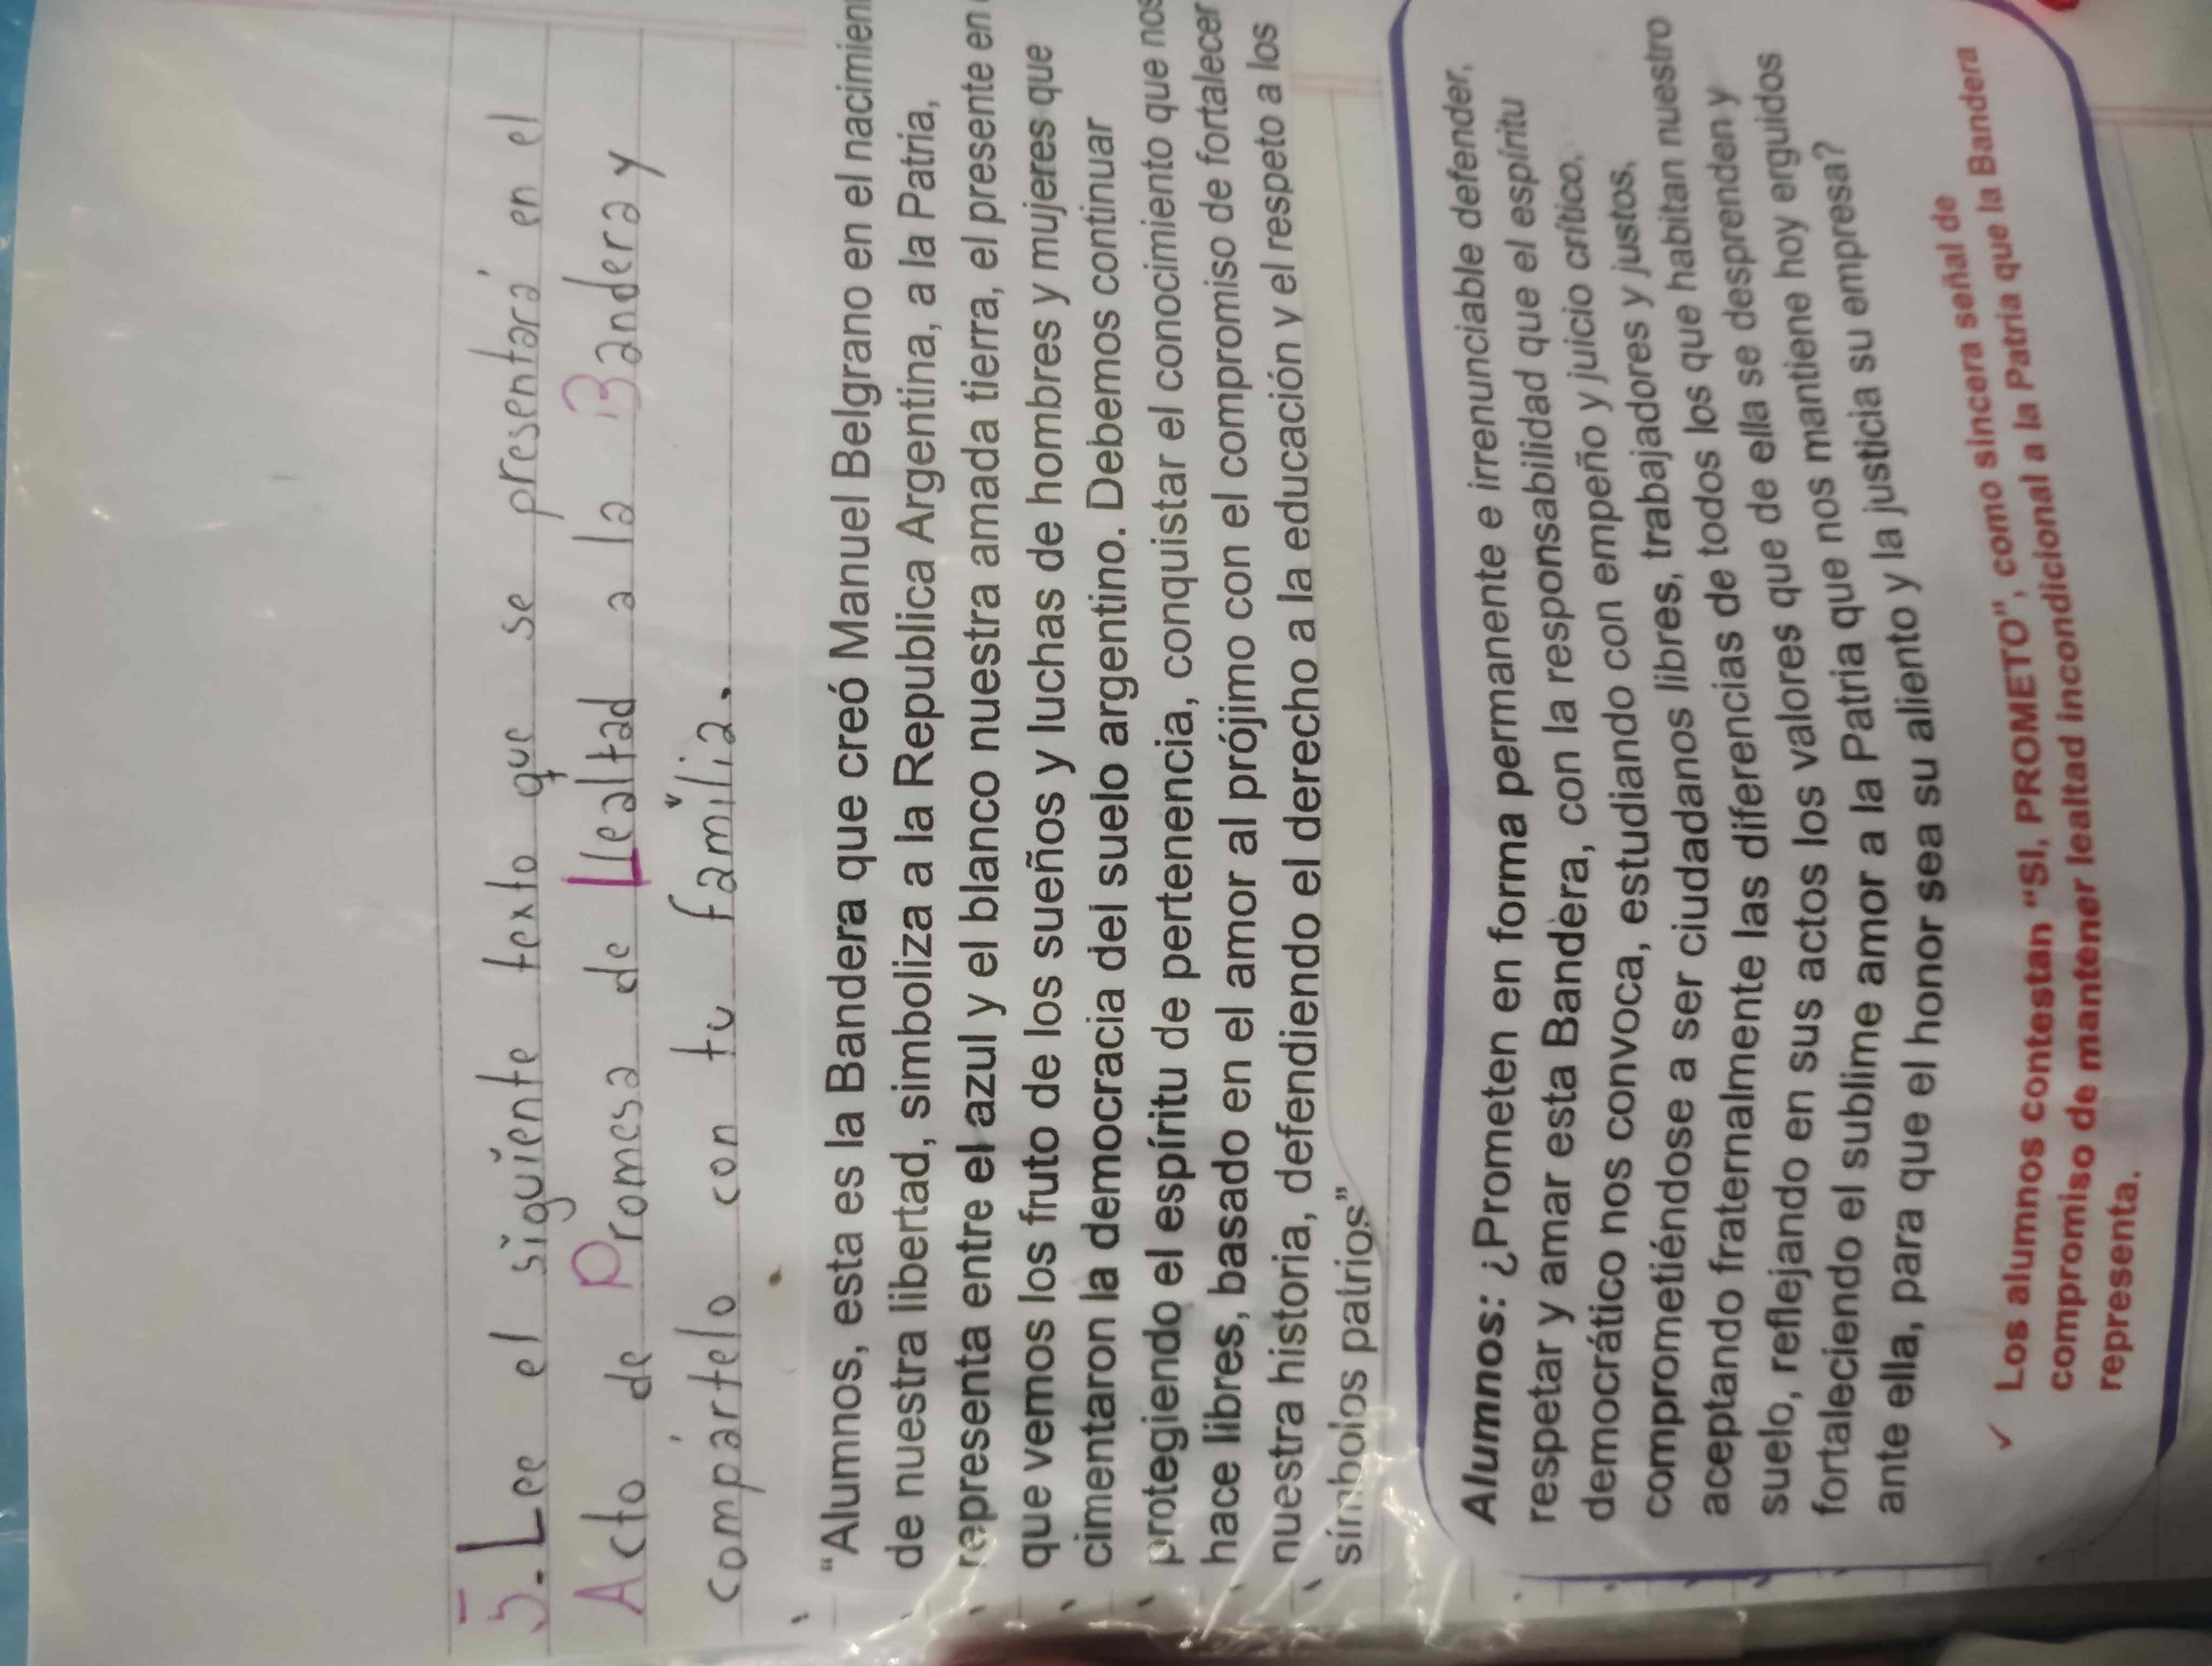 5. Lee el siguiente texto que se presentará en el
Acto de Promesa de Llealtad a la Bandera y
compártelo con tu familia.
"Alumnos, esta es la Bandera que creó Manuel Belgrano en el
de nuestra libertad, simboliza a la Republica Argentina, a la Patria,
representa entre el azul y el blanco nuestra amada tierra, el presente en
que vemos los fruto de los sueños y luchas de hombres y mujeres que
cimentaron la democracia del suelo argentino. Debemos continuar
protegiendo el espíritu de pertenencia, conquistar el conocimiento que nos
hace libres, basado en el amor al prójimo con el compromiso de fortalecer
nuestra historia, defendiendo el derecho a la educación y el respeto a los
símbolos patrios"
Alumnos: ¿Prometen en forma permanente e irrenunciable defender,
respetar y amar esta Bandera, con la responsabilidad que el espíritu
democrático nos convoca, estudiando con empeño y juicio crítico,
comprometiéndose a ser ciudadanos libres, trabajadores y justos,
aceptando fraternalmente las diferencias de todos los que habitan nuestro
suelo, reflejando en sus actos los valores que de ella se desprenden y
fortaleciendo el sublime amor a la Patria que nos mantiene hoy erguidos
ante ella, para que el honor sea su aliento y la justicia su empresa?
✓ Los alumnos contestan "SI, PROMETO", como sincera señal de
compromiso de mantener lealtad incondicional a la Patria que la Bandera
representa.